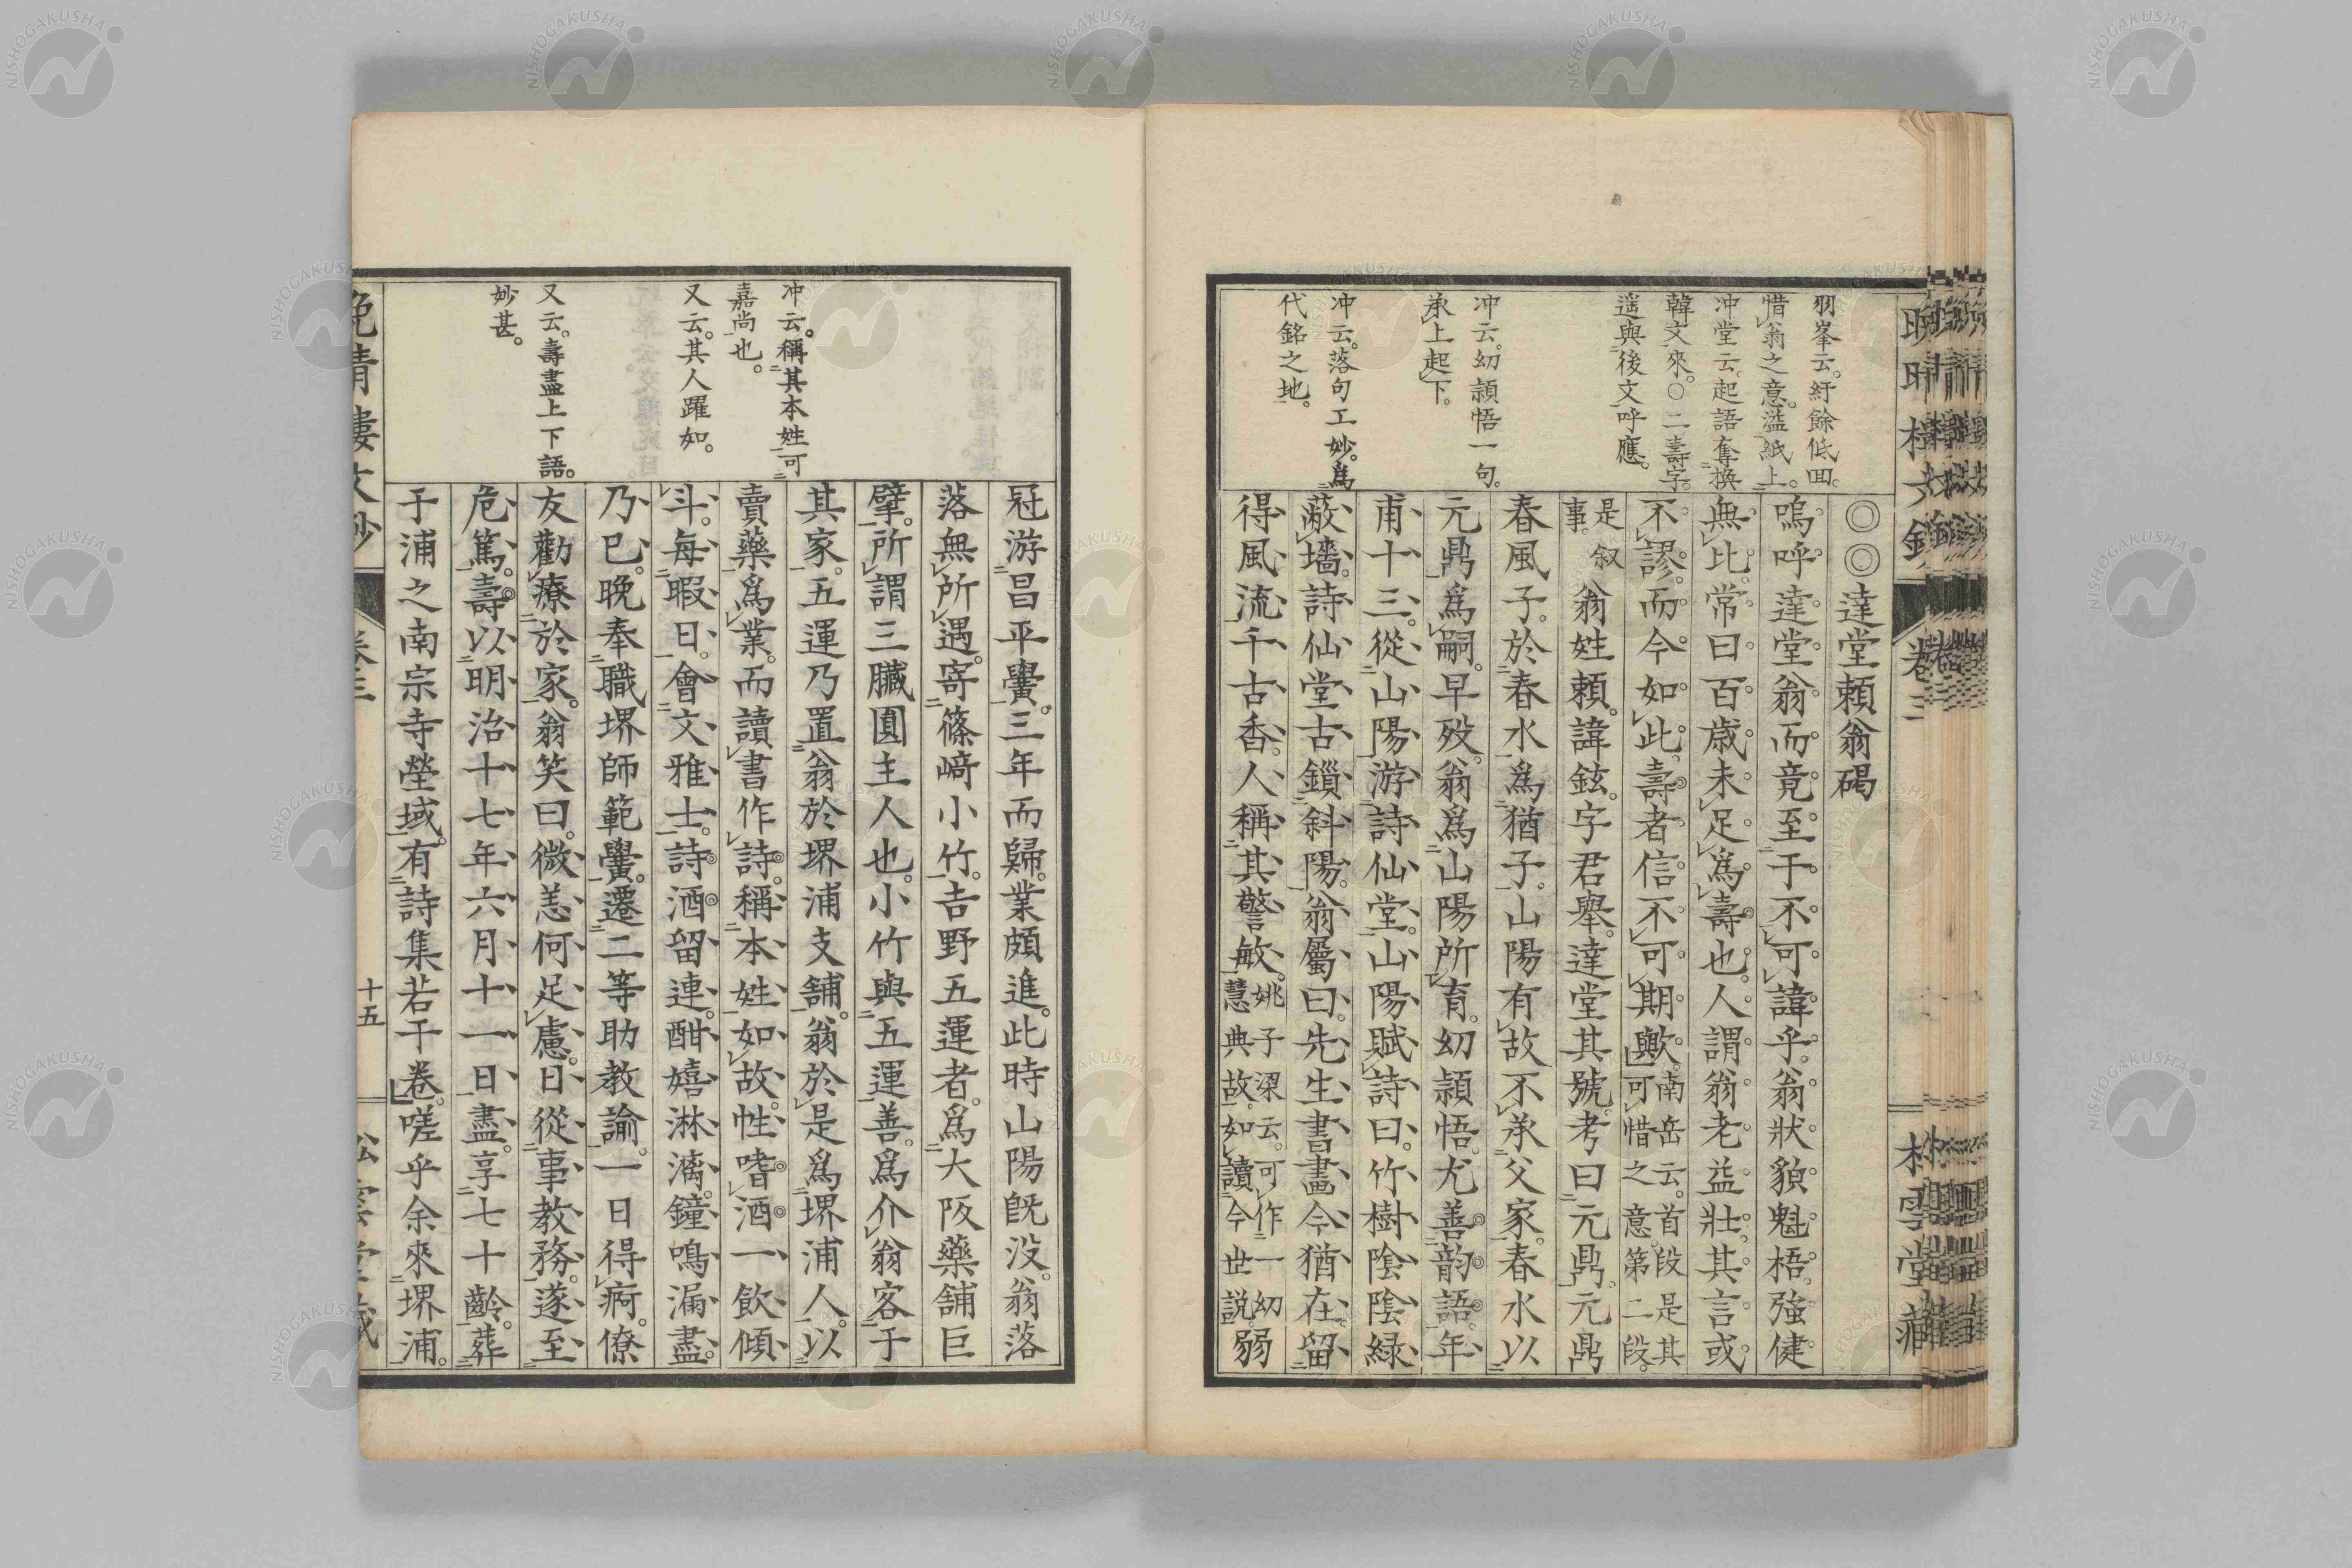 羽峯云。紆餘低回。
惜翁之意。溢紙上。
冲堂云。起語奪換
韓文來。〇二壽字。
遥與後文呼應。
冲云。幼頴悟一句。
承上起下。
冲云。落句工妙。爲
代銘之地。
◎◎達堂頼翁碣
嗚呼達堂翁。而竟至于不可諱乎。翁狀貌魁梧。強健
無比。常曰。百歳未足爲壽也。人謂翁老益壯。其言或
不謬。而今如此。壽者信不可期歟。南岳云。首段是其可惜之意。第二段
是叙事。翁姓頼。諱鉉。字君舉。達堂其號。考曰元鼎。元鼎
春風子。於春水爲猶子。山陽有故不承父家。春水以
元鼎爲嗣。早歿。翁爲山陽所育。幼頴悟。尤善韵語。年
甫十三。從山陽游詩仙堂。山陽賦詩曰。竹樹陰陰緑
蔽墻。詩仙堂古鎖斜陽。翁屬曰。先生書畫今猶在。留
得風流千古香。人稱其警敏。姚子梁云。可作一幼慧典故。如讀今世説。弱
晩晴樓文鈔 卷三 松雲堂藏
冲云。稱其本姓。可
嘉尚也。
又云。其人躍如。
又云。壽盡上下語。
妙甚。
冠游昌平黌。三年而歸。業頗進。此時山陽既没。翁落
落無所遇。寄篠﨑小竹。吉野五運者。爲大阪藥舗巨
擘。所謂三臓圓主人也。小竹與五運善。爲介翁客于
其家。五運乃置翁於堺浦支舗。翁於是爲堺浦人。以
賣藥爲業。而讀書作詩。稱本姓如故。性嗜酒。一飲傾
斗。毎暇日。會文雅士。詩酒留連。酣嬉淋漓。鐘鳴漏盡。
乃已。晩奉職堺師範黌。遷二等助教諭。一日得痾。僚
友勸療於家。翁笑曰。微恙何足慮。日從事教務。遂至
危篤。壽以明治十七年六月十一日盡。享七十齡。葬
于浦之南宗寺塋域。有詩集若干卷。嗟乎余來堺浦。
晩晴樓文鈔 卷三 十五 松雲堂藏
NISHOGAKUSHA